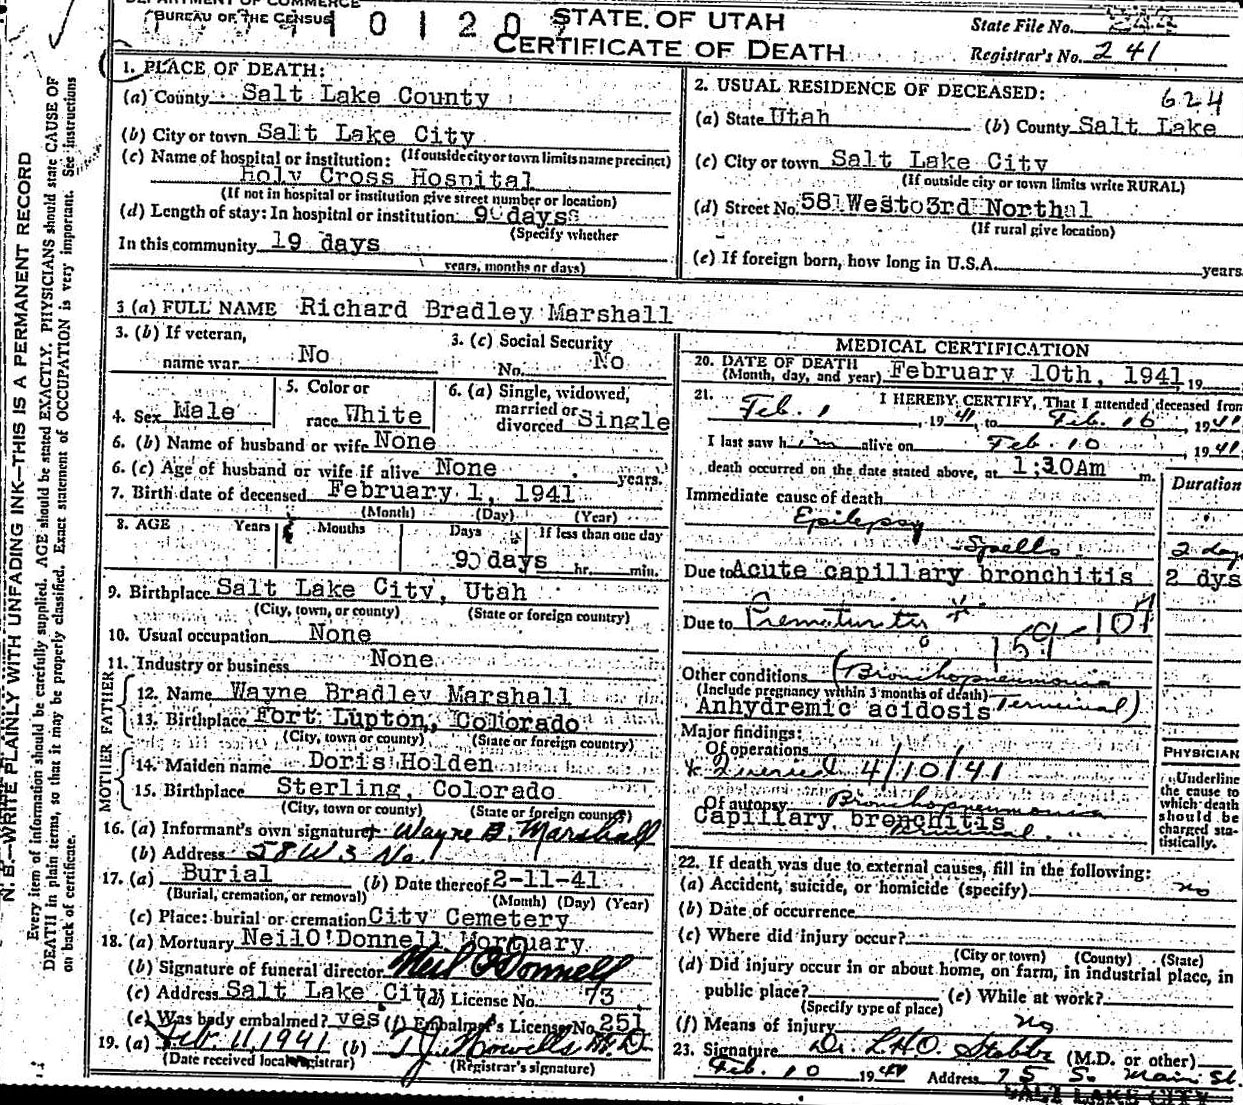 DEPARTMENT OF COMMERCE
BUREAU OF THE CENSUS
STATE OF UTAH
CERTIFICATE OF DEATH
State File No.
Registrar's No. 241
N. B.—WRITE PLAINLY WITH UNFADING INK—THIS IS A PERMANENT RECORD
Every item of information should be carefully supplied. AGE should be stated EXACTLY. PHYSICIANS should state CAUSE OF
DEATH in plain terms, so that it may be properly classified. Exact statement of OCCUPATION is very important. See instructions
on back of certificate.
1. PLACE OF DEATH:
(a) County Salt Lake County
(b) City or town Salt Lake City
(c) Name of hospital or institution: (If outside city or town limits name precinct)
Holy Cross Hospital
(If not in hospital or institution give street number or location)
(d) Length of stay: In hospital or institution 9 days
(Specify whether
In this community 19 days
years, months or days)
2. USUAL RESIDENCE OF DECEASED:
624
(a) State Utah (b) County Salt Lake
(c) City or town Salt Lake City
(If outside city or town limits write RURAL)
(d) Street No. 58 West 3rd North
(If rural give location)
(e) If foreign born, how long in U.S.A. years
3 (a) FULL NAME Richard Bradley Marshall
3. (b) If veteran,
name war No
3. (c) Social Security
No. No
4. Sex Male
5. Color or
race White
6. (a) Single, widowed,
married or
divorced Single
6. (b) Name of husband or wife None
6. (c) Age of husband or wife if alive None years.
7. Birth date of deceased February 1, 1941
(Month) (Day) (Year)
8. AGE Years Months Days If less than one day
9 days hr. min.
9. Birthplace Salt Lake City, Utah
(City, town, or county) (State or foreign country)
10. Usual occupation None
11. Industry or business None
FATHER
12. Name Wayne Bradley Marshall
13. Birthplace Fort Lupton, Colorado
(City, town or county) (State or foreign country)
MOTHER
14. Maiden name Doris Holden
15. Birthplace Sterling, Colorado
(City, town or county) (State or foreign country)
16. (a) Informant's own signature Wayne B. Marshall
(b) Address 58 W 3 No.
17. (a) Burial (b) Date thereof 2-11-41
(Burial, cremation, or removal) (Month) (Day) (Year)
(c) Place: burial or cremation City Cemetery
18. (a) Mortuary Neil O'Donnell Mortuary
(b) Signature of funeral director Neil O'Donnell
(c) Address Salt Lake City (d) License No. 73
(e) Was body embalmed? yes (f) Embalmer's License No. 251
19. (a) Feb. 11, 1941 (b) T.J. Howells M.D.
(Date received local registrar) (Registrar's signature)
MEDICAL CERTIFICATION
20. DATE OF DEATH
(Month, day, and year) February 10th, 1941, 19
21. I HEREBY CERTIFY, That I attended deceased from
Feb. 1, 1941, to Feb. 10, 1941
I last saw him alive on Feb. 10, 1941
death occurred on the date stated above, at 1:30Am m.
Duration
Immediate cause of death
Epilepsy
Spells 2 day
Due to Acute capillary bronchitis 2 dys
Due to Prematurity
159-107
Other conditions (Bronchopneumonia
(Include pregnancy within 3 months of death) Terminal)
Anhydremic acidosis
Major findings:
Of operations
* Queried 4/10/41
Of autopsy Bronchopneumonia
Capillary bronchitis terminal.
PHYSICIAN
Underline
the cause to
which death
should be
charged sta-
tistically.
22. If death was due to external causes, fill in the following:
(a) Accident, suicide, or homicide (specify) no
(b) Date of occurrence
(c) Where did injury occur?
(City or town) (County) (State)
(d) Did injury occur in or about home, on farm, in industrial place, in
public place? (e) While at work?
(Specify type of place)
(f) Means of injury no
23. Signature Dr. L.H.O. Stobbe (M.D. or other)
Feb. 10 1941 Address 75 S. Main St.
SALT LAKE CITY